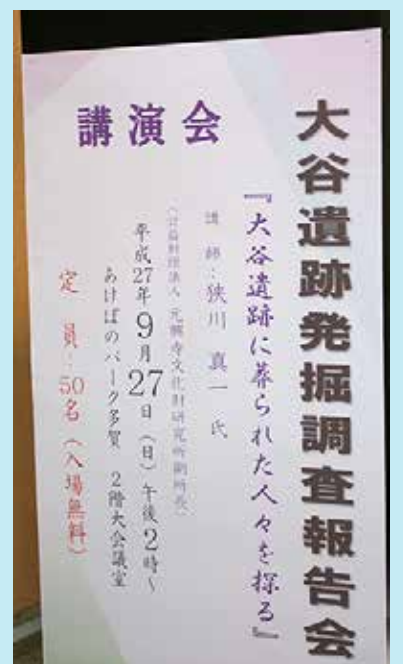 大谷遺跡発掘調査報告会
講演会
『大谷遺跡に葬られた人々を探る』
講師：狭川 真一 氏
（公益財団法人 元興寺文化財研究所副所長）
平成27年9月27日（日）午後2時～
あけぼのパーク多賀 2階大会議室
定員：50名（入場無料）